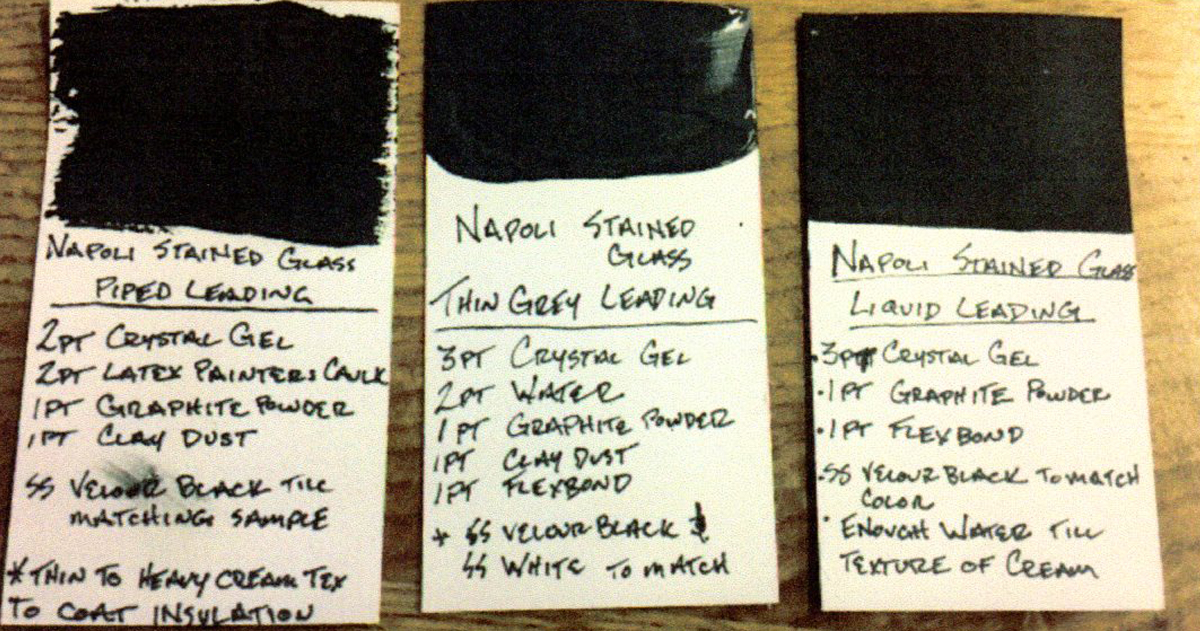 NAPOLI STAINED GLASS
PIPED LEADING
2PT CRYSTAL GEL
2PT LATEX PAINTERS CAULK
1PT GRAPHITE POWDER
1PT CLAY DUST
SS VELOUR BLACK TILL
MATCHING SAMPLE
*THIN TO HEAVY CREAM TEX
TO COAT INSULATION
NAPOLI STAINED
GLASS
THIN GREY LEADING
3PT CRYSTAL GEL
2PT WATER
1PT GRAPHITE POWDER
1PT CLAY DUST
1PT FLEXBOND
* SS VELOUR BLACK &
SS WHITE TO MATCH
NAPOLI STAINED GLASS
LIQUID LEADING
·3PT CRYSTAL GEL
·1PT GRAPHITE POWDER
·1PT FLEXBOND
·SS VELOUR BLACK TO MATCH
COLOR
·ENOUGH WATER TILL
TEXTURE OF CREAM